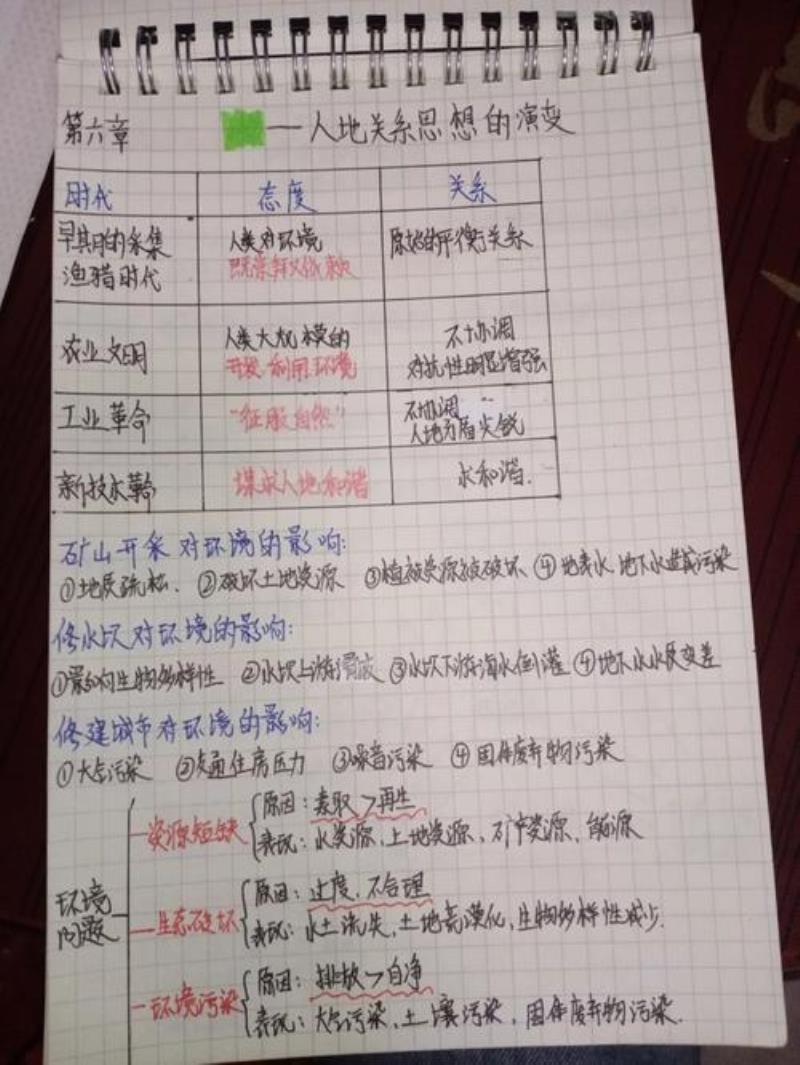 第六章 — 人地关系思想的演变
时代 态度 关系
早期的采集 人类对环境 原始的平衡关系
渔猎时代 既崇拜又依赖
农业文明 人类大规模的 不协调
开发利用环境 对抗性明显增强
工业革命 "征服自然" 不协调
人地矛盾尖锐
新技术革命 谋求人地和谐 求和谐.
矿山开采对环境的影响:
①地质疏松. ②破坏土地资源 ③植被资源被破坏 ④地表水、地下水造成污染
修水坝对环境的影响:
①影响生物多样性 ②水坝上游滑波 ③水坝下游海水倒灌 ④地下水水质变差
修建城市对环境的影响:
①大气污染 ②交通住房压力 ③噪音污染 ④固体废弃物污染
环境问题
资源短缺
原因: 索取>再生
表现: 水资源、土地资源、矿产资源、能源
生态破坏
原因: 过度、不合理
表现: 水土流失、土地荒漠化、生物多样性减少.
环境污染
原因: 排放>自净
表现: 大气污染、土壤污染、固体废弃物污染.